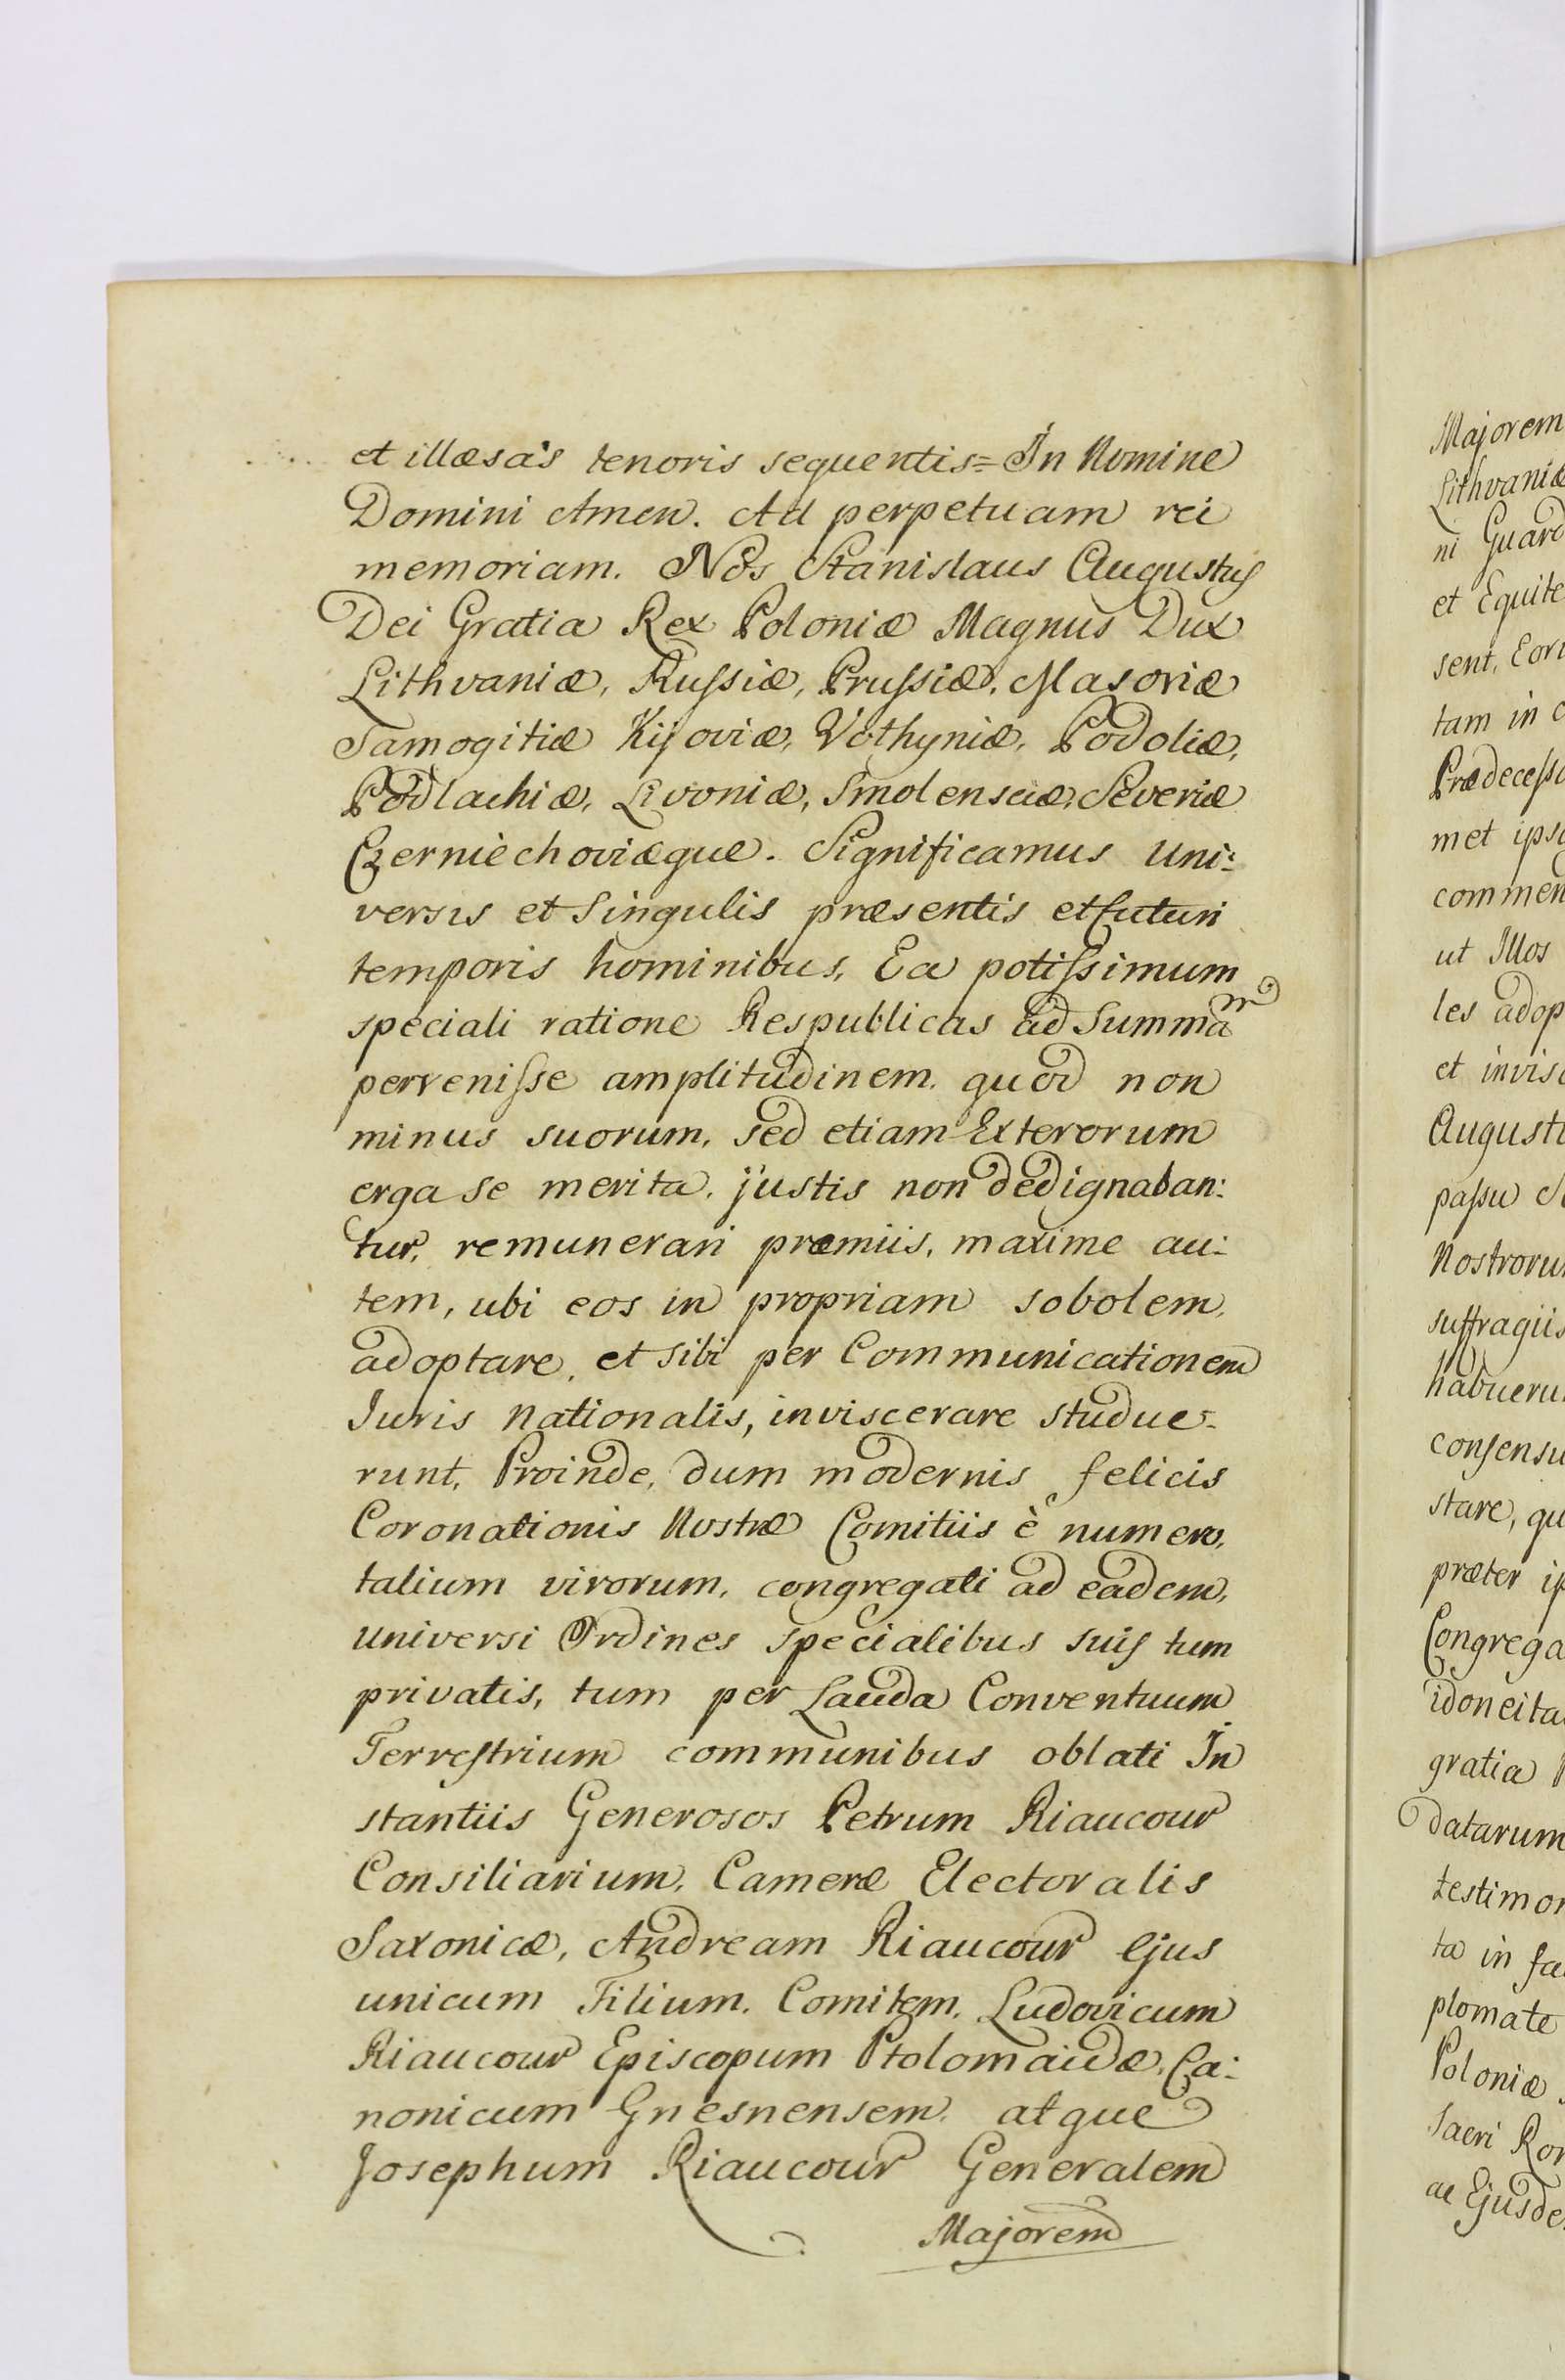 et illæsas tenoris sequentis = In Nomine
Domini Amen. Ad perpetuam rei
memoriam. Nos Stanislaus Augustus
Dei Gratia Rex Poloniæ Magnus Dux
Lithvaniæ, Russiæ, Prussiæ, Masoviæ
Samogitiæ Kijoviæ, Volhyniæ, Podoliæ,
Podlachiæ, Livoniæ, Smolensciæ, Severiæ
Czerniechoviæque. Significamus Uni:
versis et Singulis præsentis et futuri
temporis hominibus, Ea potissimum
speciali ratione Respublicas ad Summam
pervenisse amplitudinem, quod non
minus suorum, sed etiam Exterorum
erga se merita, justis non dedignaban:
tur, remunerari præmiis, maxime au:
tem, ubi eos in propriam sobolem,
adoptare, et sibi per Communicationem
Juris Nationalis, inviscerare studue-
runt, Proinde, dum modernis felicis
Coronationis Nostræ Comitiis è numero,
talium virorum, congregati ad eadem,
universi Ordines specialibus suis tum
privatis, tum per Lauda Conventuum
Terrestrium communibus oblati In
stantiis Generosos Petrum Riaucour
Consiliarium, Cameræ Electoralis
Saxonicæ, Andream Riaucour ejus
unicum Filium, Comitem, Ludovicum
Riaucour Episcopum Ptolomaidæ, Ca:
nonicum Gnesnensem, atque
Josephum Riaucour Generalem
Majorem
Majorem
Lithvaniæ
ni Guard
et Equite
sent, Eor
tam in
Prædecesso
met ips
commen
ut Illos
les adop
et invis
Augusti
passu
Nostroru
suffragiis
habueru
consensu
stare, qu
præter ip
Congrega
idoneita
gratia
datarum
testimon
ta in fa
plomate
Poloniæ
Sacri Rom
ac Ejusde